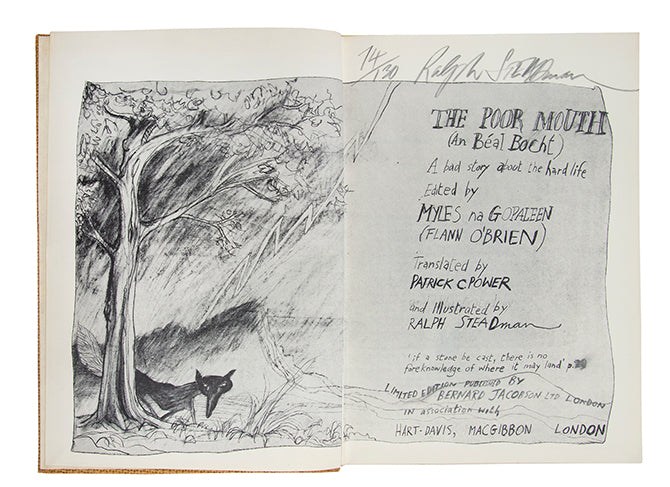 14/130 Ralph STEADman
THE POOR MOUTH
(An Béal Bocht)
A bad story about the hard life
Edited by
MYLES na GOPALEEN
(FLANN O'BRIEN)
Translated by
PATRICK C POWER
and Illustrated by
RALPH STEADman
'if a stone be cast, there is no
foreknowledge of where it may land' p.
LIMITED EDITION PUBLISHED BY
BERNARD JACOBSON LTD LONDON
in association with
HART-DAVIS, MACGIBBON LONDON